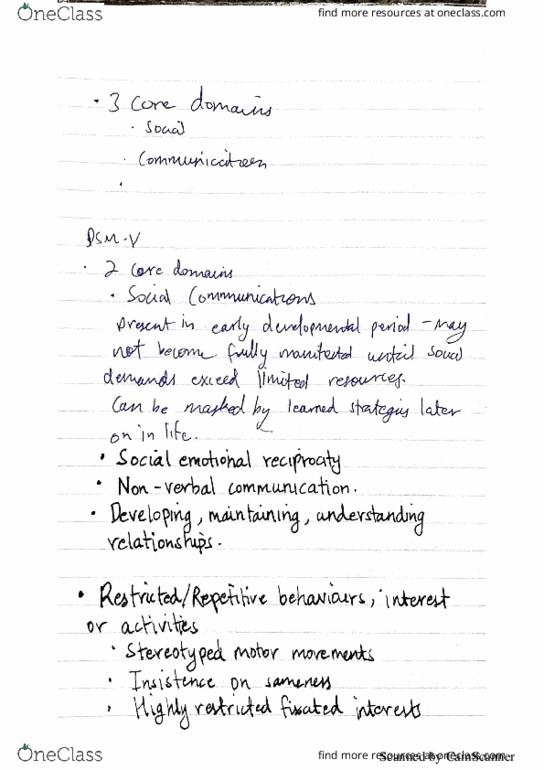 OneClass
find more resources at oneclass.com
· 3 Core domains
· Social
· Communication
·
DSM-V
· 2 Core domains
· Social Communications
Present in early developmental period - may
not become fully manifested until social
demands exceed limited resources.
Can be masked by learned strategies later
on in life.
· Social emotional reciprocity
· Non-verbal communication.
· Developing, maintaining, understanding
relationships.
· Restricted/Repetitive behaviours, interest
or activities
· Stereotyped motor movements
· Insistence on sameness
· Highly restricted fixated interests
OneClass
find more resources at oneclass.com
Scanned by CamScanner